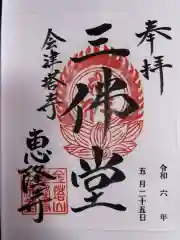 奉拝
令和六年
五月二十五日
三佛堂
会津塔寺
恵隆寺